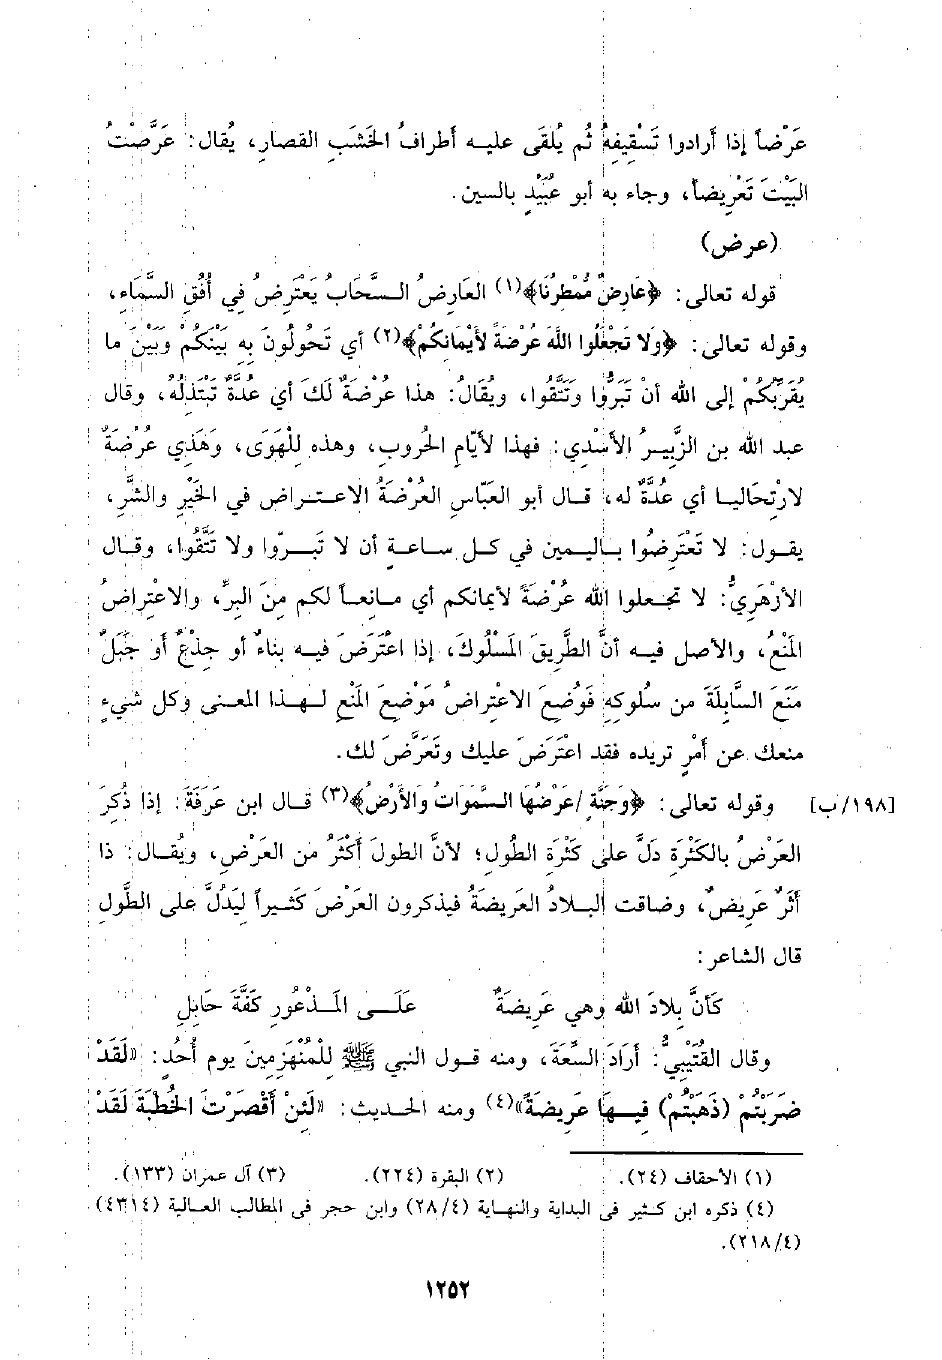 عَرْضاً إذا أرادوا تَسْقِيفِهُ ثُم يُلقَى عليه أطرافُ الخَشَبِ القصارِ، يُقال: عَرَّصْتُ
البَيْتَ تَعْرِيضاً، وجاء به أبو عُبَيْدٍ بالسين.
(عرض)
قوله تعالى: ﴿عَارِضٌ مُمْطِرُنَا﴾(١) العارِضُ السَّحَابُ يَعْتَرِضُ فِي أُفُقِ السَّماءِ،
وقوله تعالى: ﴿وَلا تَجْعَلُوا اللهَ عُرْضَةً لأَيْمَانِكُمْ﴾(٢) أي تَحُولُونَ بِهِ بَيْنَكُمْ وَبَيْنَ ما
يُقَرِّبُكُمْ إلى الله أنْ تَبَرُّوا وَتَتَّقُوا، ويقالُ: هذا عُرْضَةٌ لَكَ أي عُدَّةٌ تَبْتَذِلُهُ، وقال
عبد الله بن الزَّبِيرُ الأَسْدِي: فهذا لأيَّامِ الحُروبِ، وهذه لِلْهَوَى، وَهَذِي عُرْضَةٌ
لارْتِحَاليا أي عُدَّةٌ له، قال أبو العَبَّاسِ العُرْضَةُ الاعتراض في الخَيْرِ والشَّرِّ،
يقول: لا تَعْتَرِضُوا باليمين في كل ساعةٍ أن لا تَبَرّوا ولا تَتَّقُوا، وقال
الأزْهَرِيُّ: لا تجعلوا الله عُرْضَةً لأيمانكم أي مانعاً لكم مِنَ البِرِّ، والاعْتِراضُ
المَنْعُ، والأصل فيه أنَّ الطَّرِيقَ المَسْلُوكَ، إذا اعْتَرَضَ فيه بناءٌ أو جِذْعٌ أو جَبَلٌ
مَنَعَ السَّابِلَةَ من سُلوكِهِ فَوُضِعَ الاعْتِراضُ مَوْضِعَ المَنْعِ لهذا المعنى وكل شيءٍ
منعك عن أَمْرٍ تريده فقد اعْتَرَضَ عليك وتَعَرَّضَ لك.
[١٩٨/ب] وقوله تعالى: ﴿وَجَنَّةٍ /عَرْضُهَا السَّمَواتُ وَالأَرْضُ﴾(٣) قال ابن عَرَفَةَ: إذا ذُكِرَ
العَرْضُ بالكَثْرَةِ دَلَّ على كَثْرَةِ الطولِ؛ لأنَّ الطولَ أَكْثَرُ من العَرْضِ، ويُقال: ذا
أَثَرٌ عَرِيضٌ، وضاقت البلادُ العَريضَةُ فيذكرون العَرْضَ كَثيراً لِيَدُلَّ على الطُّولِ
قال الشاعر:
كَأَنَّ بِلادَ الله وهي عَرِيضَةٌ عَلَى المَذْعُورِ كَفَّةَ حَابِلِ
وقال القُتَيْبِيُّ: أَرَادَ السَّعَةَ، ومنه قول النبي ﷺ لِلْمُنْهَزِمِينَ يوم أُحُدٍ: «لَقَدْ
ضَرَبْتُمْ (ذَهَبْتُمْ) فِيهَا عَرِيضَةً»(٤) ومنه الحديث: «لَئِنْ أَقْصَرْتَ الخُطْبَةَ لَقَدْ
(١) الأحقاف (٢٤). (٢) البقرة (٢٢٤). (٣) آل عمران (١٣٣).
(٤) ذكره ابن كثير في البداية والنهاية (٢٨/٤) وابن حجر في المطالب العالية (٤٣١٤)
(٢١٨/٤).
١٢٥٢